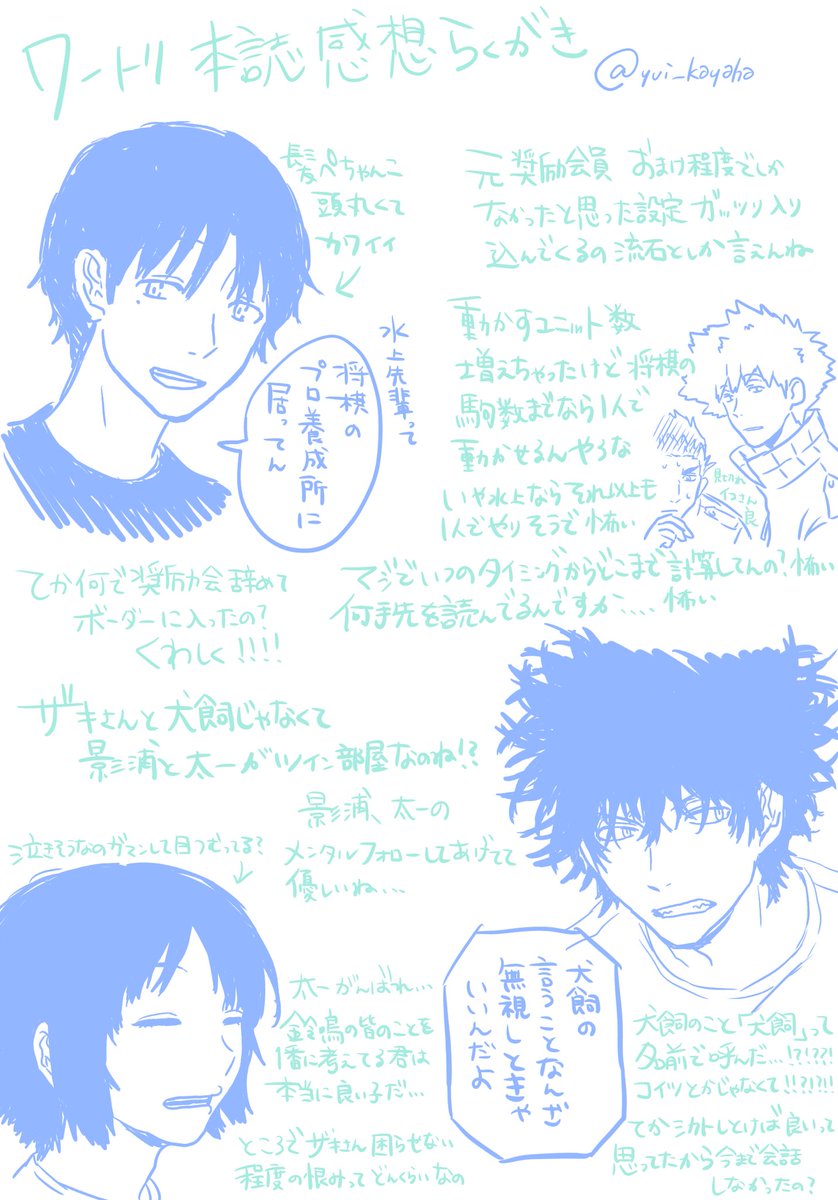 ワートリ 本誌感想らくがき
@yui_kayaha
髪ぺちゃんこ
頭丸くて
カワイイ
元奨励会員 おまけ程度でしか
なかったと思った設定 ガッツリ入り
込んでくるの流石としか言えんね
水上先輩って
将棋の
プロ養成所に
居ってん
動かすユニット数
増えちゃったけど将棋の
駒数までなら1人で
動かせるんやろな
いや水上ならそれ以上も
1人でやりそうで怖い
見切れ
イコさん
良
てか何で奨励会辞めて
ボーダーに入ったの?
くわしく!!!!
マジでいつのタイミングからどこまで計算してんの?怖い
何手先を読んでるんですか....怖い
ザキさんと犬飼じゃなくて
影浦と太一がツイン部屋なのね!?
影浦、太一の
メンタルフォローしてあげてて
優しいね...
泣きそうなのガマンして目つむってる?
犬飼の
言うことなんざ
無視しときゃ
いいんだよ
太一がんばれ...
鈴鳴の皆のことを
1番に考えてる君は
本当に良い子だ...
ところでザキさん困らせない
程度の恨みってどんくらいなの
犬飼のこと「犬飼」って
名前で呼んだ...!?!??!
コイツとかじゃなくて!!?!?!!
てかシカトしとけば良いって
思ってたから今まで会話
しなかったの?